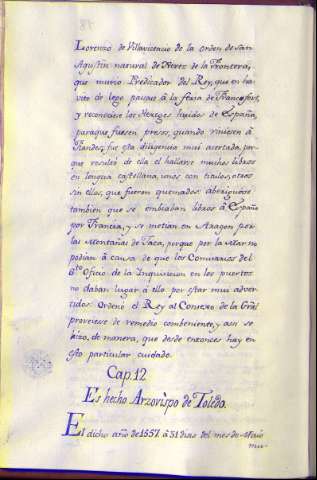 Lorenzo de Villavicencio de la orden de San
Agustin natural de Xerez de la Frontera,
que murio Predicador del Rey, que en ha-
vito de lego pasase à la feria de Francofort,
y reconociese los Hereges huidos de España,
paraque fuesen presos, quando viniesen à
Flandes; fue esta diligencia mui acertada, por-
que resultó de ella el hallarse muchos libros
en lengua castellana, unos con titulos, otros
sin ellos, que fueron quemados: aberiguose
tambien que se embiaban libros à España
por Francia, y se metian en Aragon por
las Montañas de Jaca, porque por la Mar no
podian à causa de que los Comisarios del
Sto. Oficio de la Inquisicion en los puertos
no daban lugar à ello por estar mui adver-
tidos. Ordenó el Rey al Consexo de la Gral
proveiese de remedio combeniente, y asi se
hizo de manera, que desde entonces hay en
esto particular cuidado.
Cap. 12
Es hecho Arzovispo de Toledo.
El dicho año de 1557 à 31 dias del mes de Maio